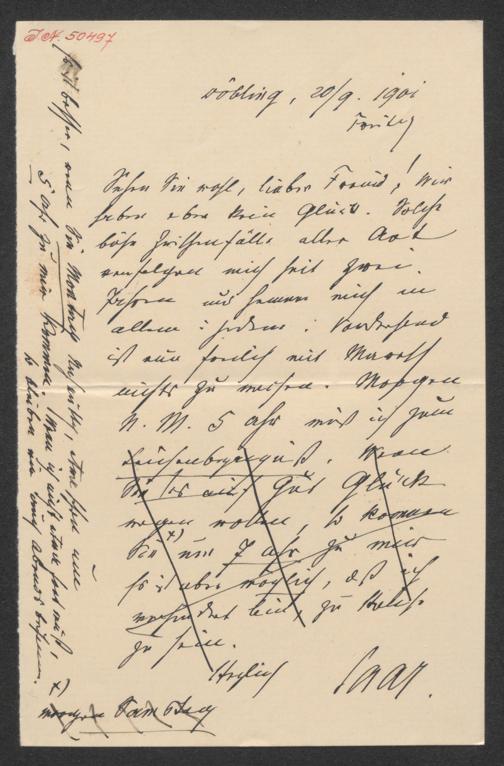 J.N. 50497
Döbling, 20/9. 1901
Freitag
Sehen Sie wohl, lieber Freund! Wir
haben eben kein Glück. Solche
böse Zwischenfälle aller Art
verfolgen mich seit zwei
Jahren und hemmen mich in
allem u. jedem.
ist nun freilich mit
nichts zu machen. Morgen
N. M. 5 Uhr muß ich zum
Leichenbegängniß. Wenn
Sie es auf gut Glück
wagen wollen, so kommen
Sie x) um 7 Uhr zu mir
Es ist aber möglich, daß ich
verhindert bin, zu Hause
zu sein.
Herzlich Saar.
x)
morgen Samstag
Es ist besser, wenn Sie Montag
5 Uhr zu mir kommen. Wenn ich nicht etwa fort muß,
so bleiben wir lang abends beisammen.